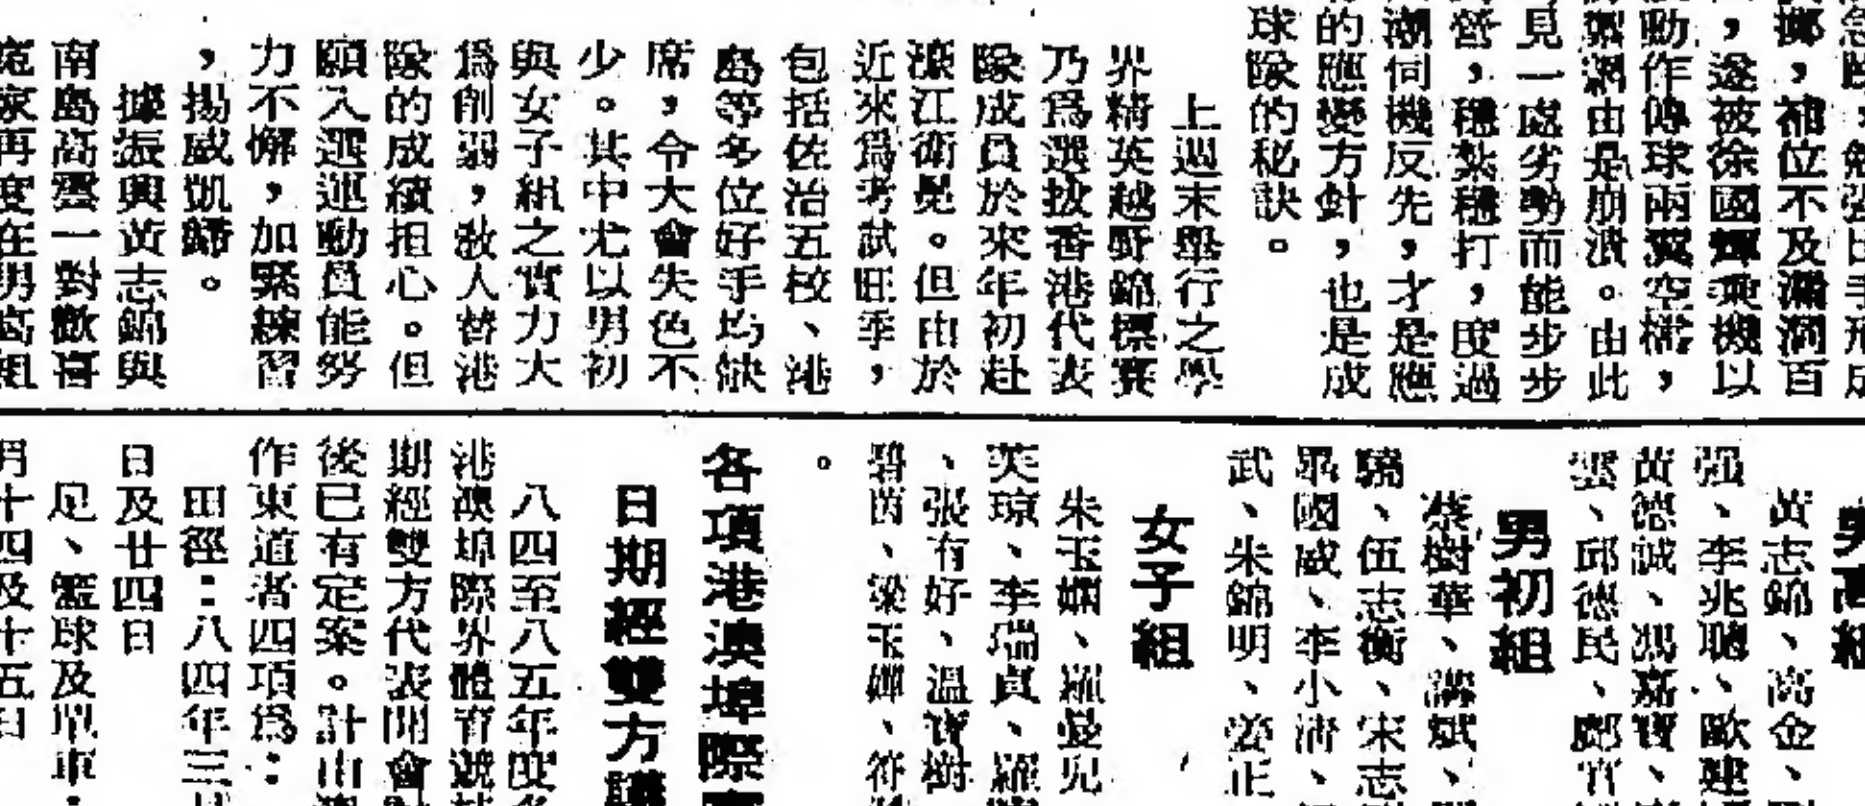 擲，補位不及漏洞百
，遂被徐國輝乘機以
動作傳球兩翼空檔，
由是崩潰。由此
見一處劣勢而能步步
營，穩紮穩打，度過
潮伺機反先，才是應
的應變方針，也是成
球隊的秘訣。
上週末舉行之學
界精英越野錦標賽
乃爲選拔香港代表
隊成員於來年初赴
濠江衛冕。但由於
近來爲考試旺季，
包括佐治五校、港
島等多位好手均缺
席，令大會失色不
少。其中尤以男初
與女子組之實力大
爲削弱，教人替港
隊的成績担心。但
願入選運動員能努
力不懈，加緊練習
，揚威凱歸。
據振興黃志錦與
南島高雲一對歡喜
寃家再度在男高組
男高組
黃志錦、高金、
强、李兆聰、歐建
黃德誠、馮嘉寶、
雲、邱德民、鄭
男初組
蔡樹華、斌、
驍、伍志衡、宋志
國威、李小濟、
武、朱錦明、正
女子組
朱玉嫻、羅曼兒
英琼、李瑞貞、羅
、張有好、溫寶樹
碧茵、梁玉嬋、符
。
各項港澳埠際
日期經雙方議
八四至八五年度各
港澳埠際界體育競
期經雙方代表開會
後已有定案。計由
作東道者四項爲：
田徑：八四年三
日及廿四日
足、籃球及單車：
月十四及十五日